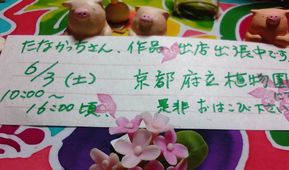 たなかっちさん、作品 出店出張中です
6/3(土) 京都府立植物園にて
10:00〜
16:00頃、是非おはこび下さい